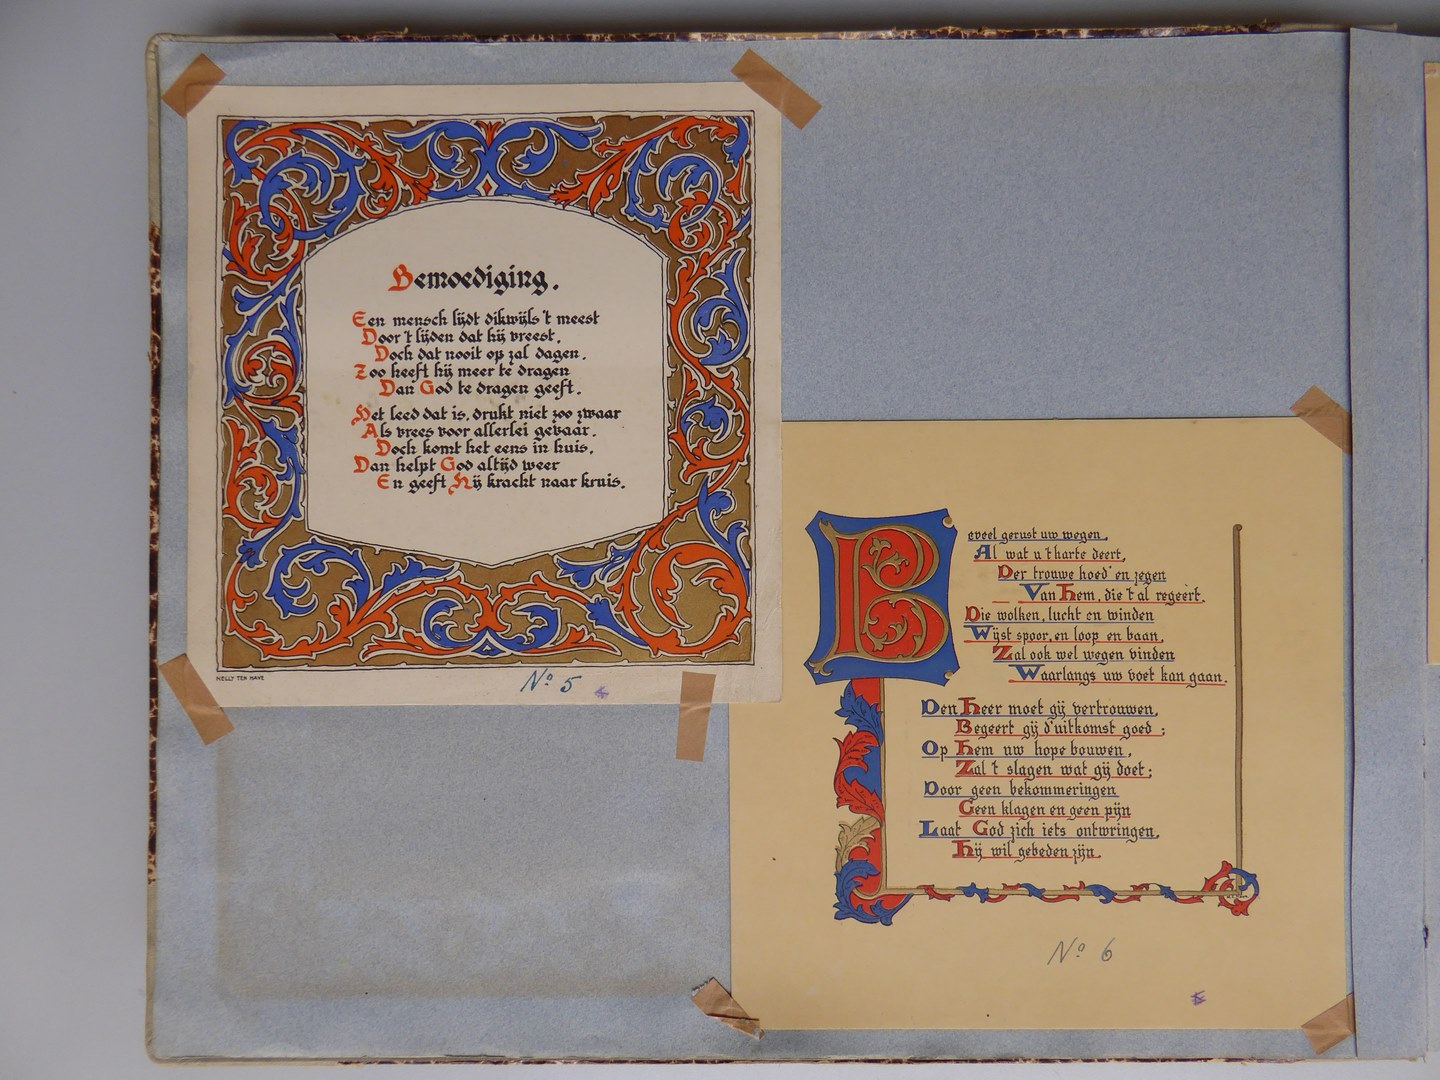 Bemoediging.
Een mensch lijdt dikwijls 't meest
Door 't lijden dat hij vreest,
Doch dat nooit op zal dagen.
Zoo heeft hij meer te dragen
Dan God te dragen geeft.
Het leed dat is, drukt niet zoo zwaar
Als vrees voor allerlei gevaar.
Doch komt het eens in huis,
Dan helpt God altijd weer
En geeft Hij kracht naar kruis.
NELLY TEN HAVE
No 5
Beveel gerust uw wegen,
Al wat u 't harte deert,
Der trouwe hoed' en zegen
Van Hem, die 't al regeert.
Die wolken, lucht en winden
Wijst spoor, en loop en baan,
Zal ook wel wegen vinden
Waarlangs uw voet kan gaan.
Den Heer moet gij vertrouwen,
Begeert gij d'uitkomst goed;
Op Hem uw hope bouwen,
Zal 't slagen wat gij doet;
Door geen bekommeringen
Geen klagen en geen pijn
Laat God zich iets ontwringen,
Hij wil gebeden zijn.
No 6